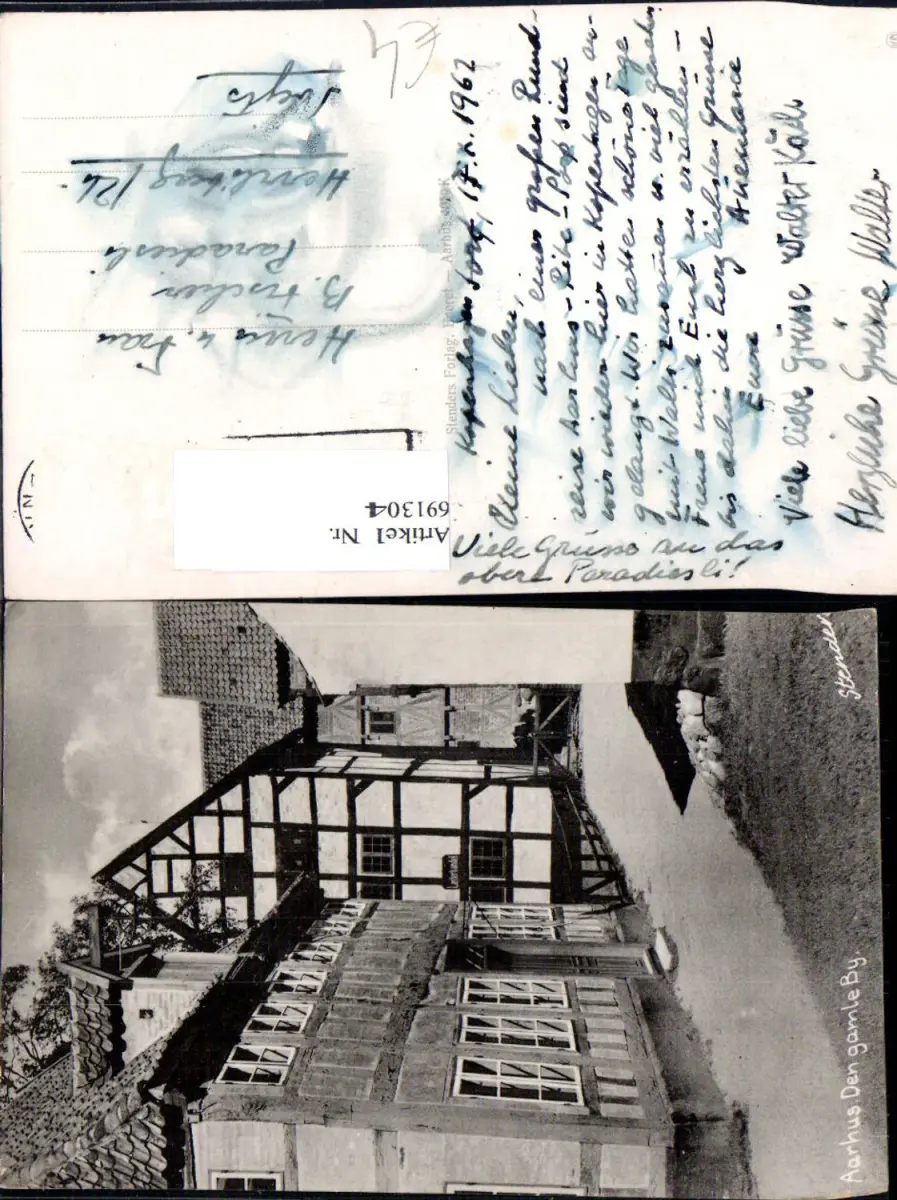 Kopenhagen Torg, 17.X.1962
Meine Lieben,
nach einer großen Rund-
reise Aarhus - Ribe - sind
wir wieder hier in Kopenhagen an-
gelangt. Wir hatten schöne Tage
mit Walter zusammen u. viel gesehen.
Freue mich Euch zu erzählen -
bis dahin die herzlichsten Grüsse
Eure Annemarie
Viele liebe Grüsse Walter
Herzliche Grüsse Walter
Viele Grüsse an das
obere Paradiesli!
Stenders Forlag. Eneret - Aarhus
Herrn u. Frau
B. Fischer
Paradiesli
Herrliberg / Zh
Artikel Nr.
691304
Stender
Aarhus Den gamle By.